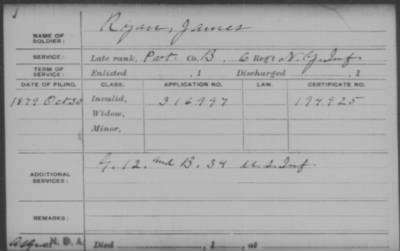 NAME OF SOLDIER: Ryan, James
SERVICE: Late rank, Pvt. Co. B, 6 Reg't N.Y. Inf
TERM OF SERVICE: Enlisted , 1 Discharged , 1
DATE OF FILING. CLASS. APPLICATION NO. LAW. CERTIFICATE NO.
1879 Oct 30 Invalid, 316997 194925
Widow,
Minor,
ADDITIONAL SERVICES: G. 12. and B. 34 U.S. Inf
REMARKS:
N.D.A. Died , 1 , at